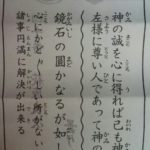 神の誠を心に得れば己も神
左様に尊い人であって神の
鏡石の圓かなるが如
心にかど しい所がな
諸事円満に解決が出来る